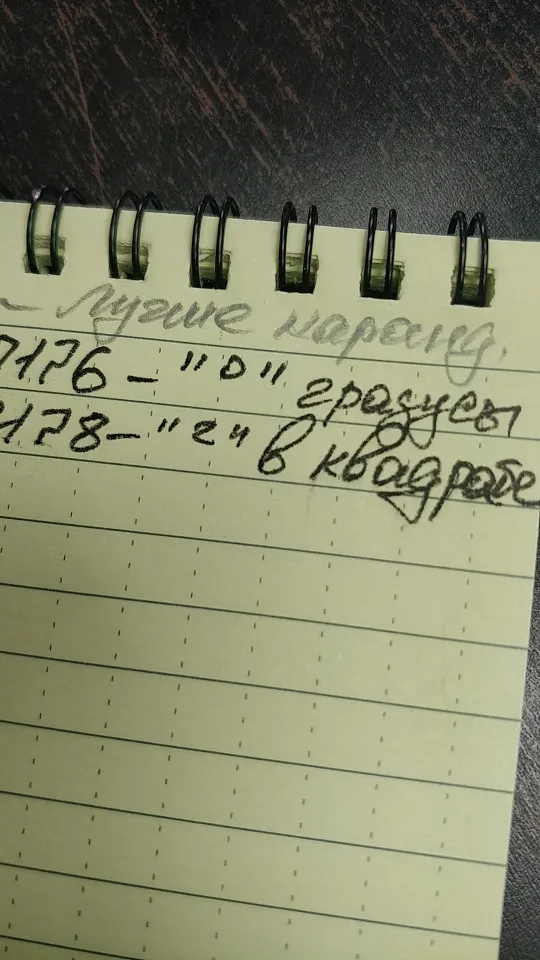 – Лучше каранд.
0176 – "°" градусы
0178 – "²" в квадрате